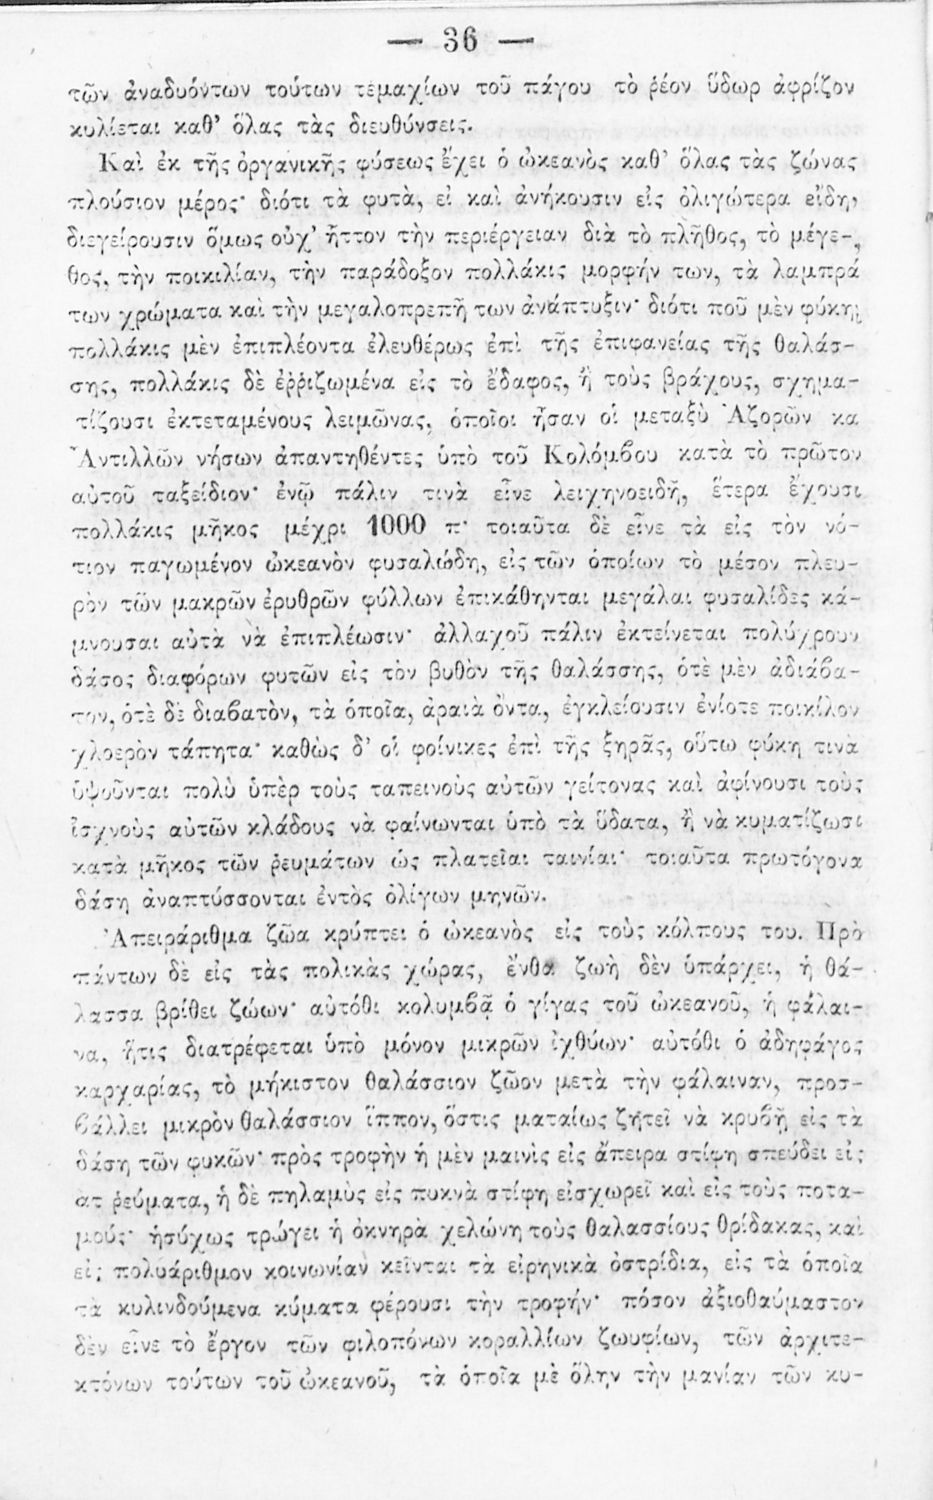 — 36 —
τῶν ἀναδυόντων τούτων τεμαχίων τοῦ πάγου τὸ ῥέον ὕδωρ ἀφρίζον
κυλίεται καθ’ ὅλας τὰς διευθύνσεις.
Καὶ ἐκ τῆς ὀργανικῆς φύσεως ἔχει ὁ ὠκεανὸς καθ’ ὅλας τὰς ζώνας
πλούσιον μέρος· διότι τὰ φυτὰ, εἰ καὶ ἀνήκουσιν εἰς ὀλιγώτερα εἴδη,
διεγείρουσιν ὅμως οὐχ’ ἧττον τὴν περιέργειαν διὰ τὸ πλῆθος, τὸ μέγε-
θος, τὴν ποικιλίαν, τὴν παράδοξον πολλάκις μορφήν των, τὰ λαμπρά
των χρώματα καὶ τὴν μεγαλοπρεπῆ των ἀνάπτυξιν· διότι ποῦ μὲν φύκη,
πολλάκις μὲν ἐπιπλέοντα ἐλευθέρως ἐπὶ τῆς ἐπιφανείας τῆς θαλάσ-
σης, πολλάκις δὲ ἐῤῥιζωμένα εἰς τὸ ἔδαφος, ἢ τοὺς βράχους, σχημα-
τίζουσι ἐκτεταμένους λειμῶνας, ὁποῖοι ἦσαν οἱ μεταξὺ Ἀζορῶν κα
Ἀντιλλῶν νήσων ἀπαντηθέντες ὑπὸ τοῦ Κολόμβου κατὰ τὸ πρῶτον
αὐτοῦ ταξείδιον· ἐνῷ πάλιν τινὰ εἶνε λειχηνοειδῆ, ἕτερα ἔχουσι
πολλάκις μῆκος μέχρι 1000 π· τοιαῦτα δὲ εἶνε τὰ εἰς τὸν νό-
τιον παγωμένον ὠκεανὸν φυσαλώδη, εἰς τῶν ὁποίων τὸ μέσον πλευ-
ρὸν τῶν μακρῶν ἐρυθρῶν φύλλων ἐπικάθηνται μεγάλαι φυσαλίδες κά-
μνουσαι αὐτὰ νὰ ἐπιπλέωσιν· ἀλλαχοῦ πάλιν ἐκτείνεται πολύχρουν
δάσος διαφόρων φυτῶν εἰς τὸν βυθὸν τῆς θαλάσσης, ὁτὲ μὲν ἀδιάβα-
τον, ὁτὲ δὲ διαβατὸν, τὰ ὁποῖα, ἀραιὰ ὄντα, ἐγκλείουσιν ἐνίοτε ποικίλον
χλοερὸν τάπητα· καθὼς δ’ οἱ φοίνικες ἐπὶ τῆς ξηρᾶς, οὕτω φύκη τινὰ
ὑψοῦνται πολὺ ὑπὲρ τοὺς ταπεινοὺς αὐτῶν γείτονας καὶ ἀφίνουσι τοὺς
ἰσχνοὺς αὐτῶν κλάδους νὰ φαίνωνται ὑπὸ τὰ ὕδατα, ἢ νὰ κυματίζωσι
κατὰ μῆκος τῶν ῥευμάτων ὡς πλατεῖαι ταινίαι· τοιαῦτα πρωτόγονα
δάση ἀναπτύσσονται ἐντὸς ὀλίγων μηνῶν.
Ἀπειράριθμα ζῶα κρύπτει ὁ ὠκεανὸς εἰς τοὺς κόλπους του. Πρὸ
πάντων δὲ εἰς τὰς πολικὰς χώρας, ἔνθα ζωὴ δὲν ὑπάρχει, ἡ θά-
λασσα βρίθει ζώων· αὐτόθι κολυμβᾷ ὁ γίγας τοῦ ὠκεανοῦ, ἡ φάλαι-
να, ἥτις διατρέφεται ὑπὸ μόνον μικρῶν ἰχθύων· αὐτόθι ὁ ἀδηφάγος
καρχαρίας, τὸ μήκιστον θαλάσσιον ζῶον μετὰ τὴν φάλαιναν, προσ-
βάλλει μικρὸν θαλάσσιον ἵππον, ὅστις ματαίως ζητεῖ νὰ κρυβῇ εἰς τὰ
δάση τῶν φυκῶν· πρὸς τροφὴν ἡ μὲν μαινὶς εἰς ἄπειρα στίφη σπεύδει εἰς
ατ ῥεύματα, ἡ δὲ πηλαμὺς εἰς πυκνὰ στίφη εἰσχωρεῖ καὶ εἰς τοὺς ποτα-
μούς· ἡσύχως τρώγει ἡ ὀκνηρὰ χελώνη τοὺς θαλασσίους θρίδακας, καὶ
εἰς πολυάριθμον κοινωνίαν κεῖνται τὰ εἰρηνικὰ ὀστρίδια, εἰς τὰ ὁποῖα
τὰ κυλινδούμενα κύματα φέρουσι τὴν τροφήν· πόσον ἀξιοθαύμαστον
δὲν εἶνε τὸ ἔργον τῶν φιλοπόνων κοραλλίων ζωυφίων, τῶν ἀρχιτε-
κτόνων τούτων τοῦ ὠκεανοῦ, τὰ ὁποῖα μὲ ὅλην τὴν μανίαν τῶν κυ-